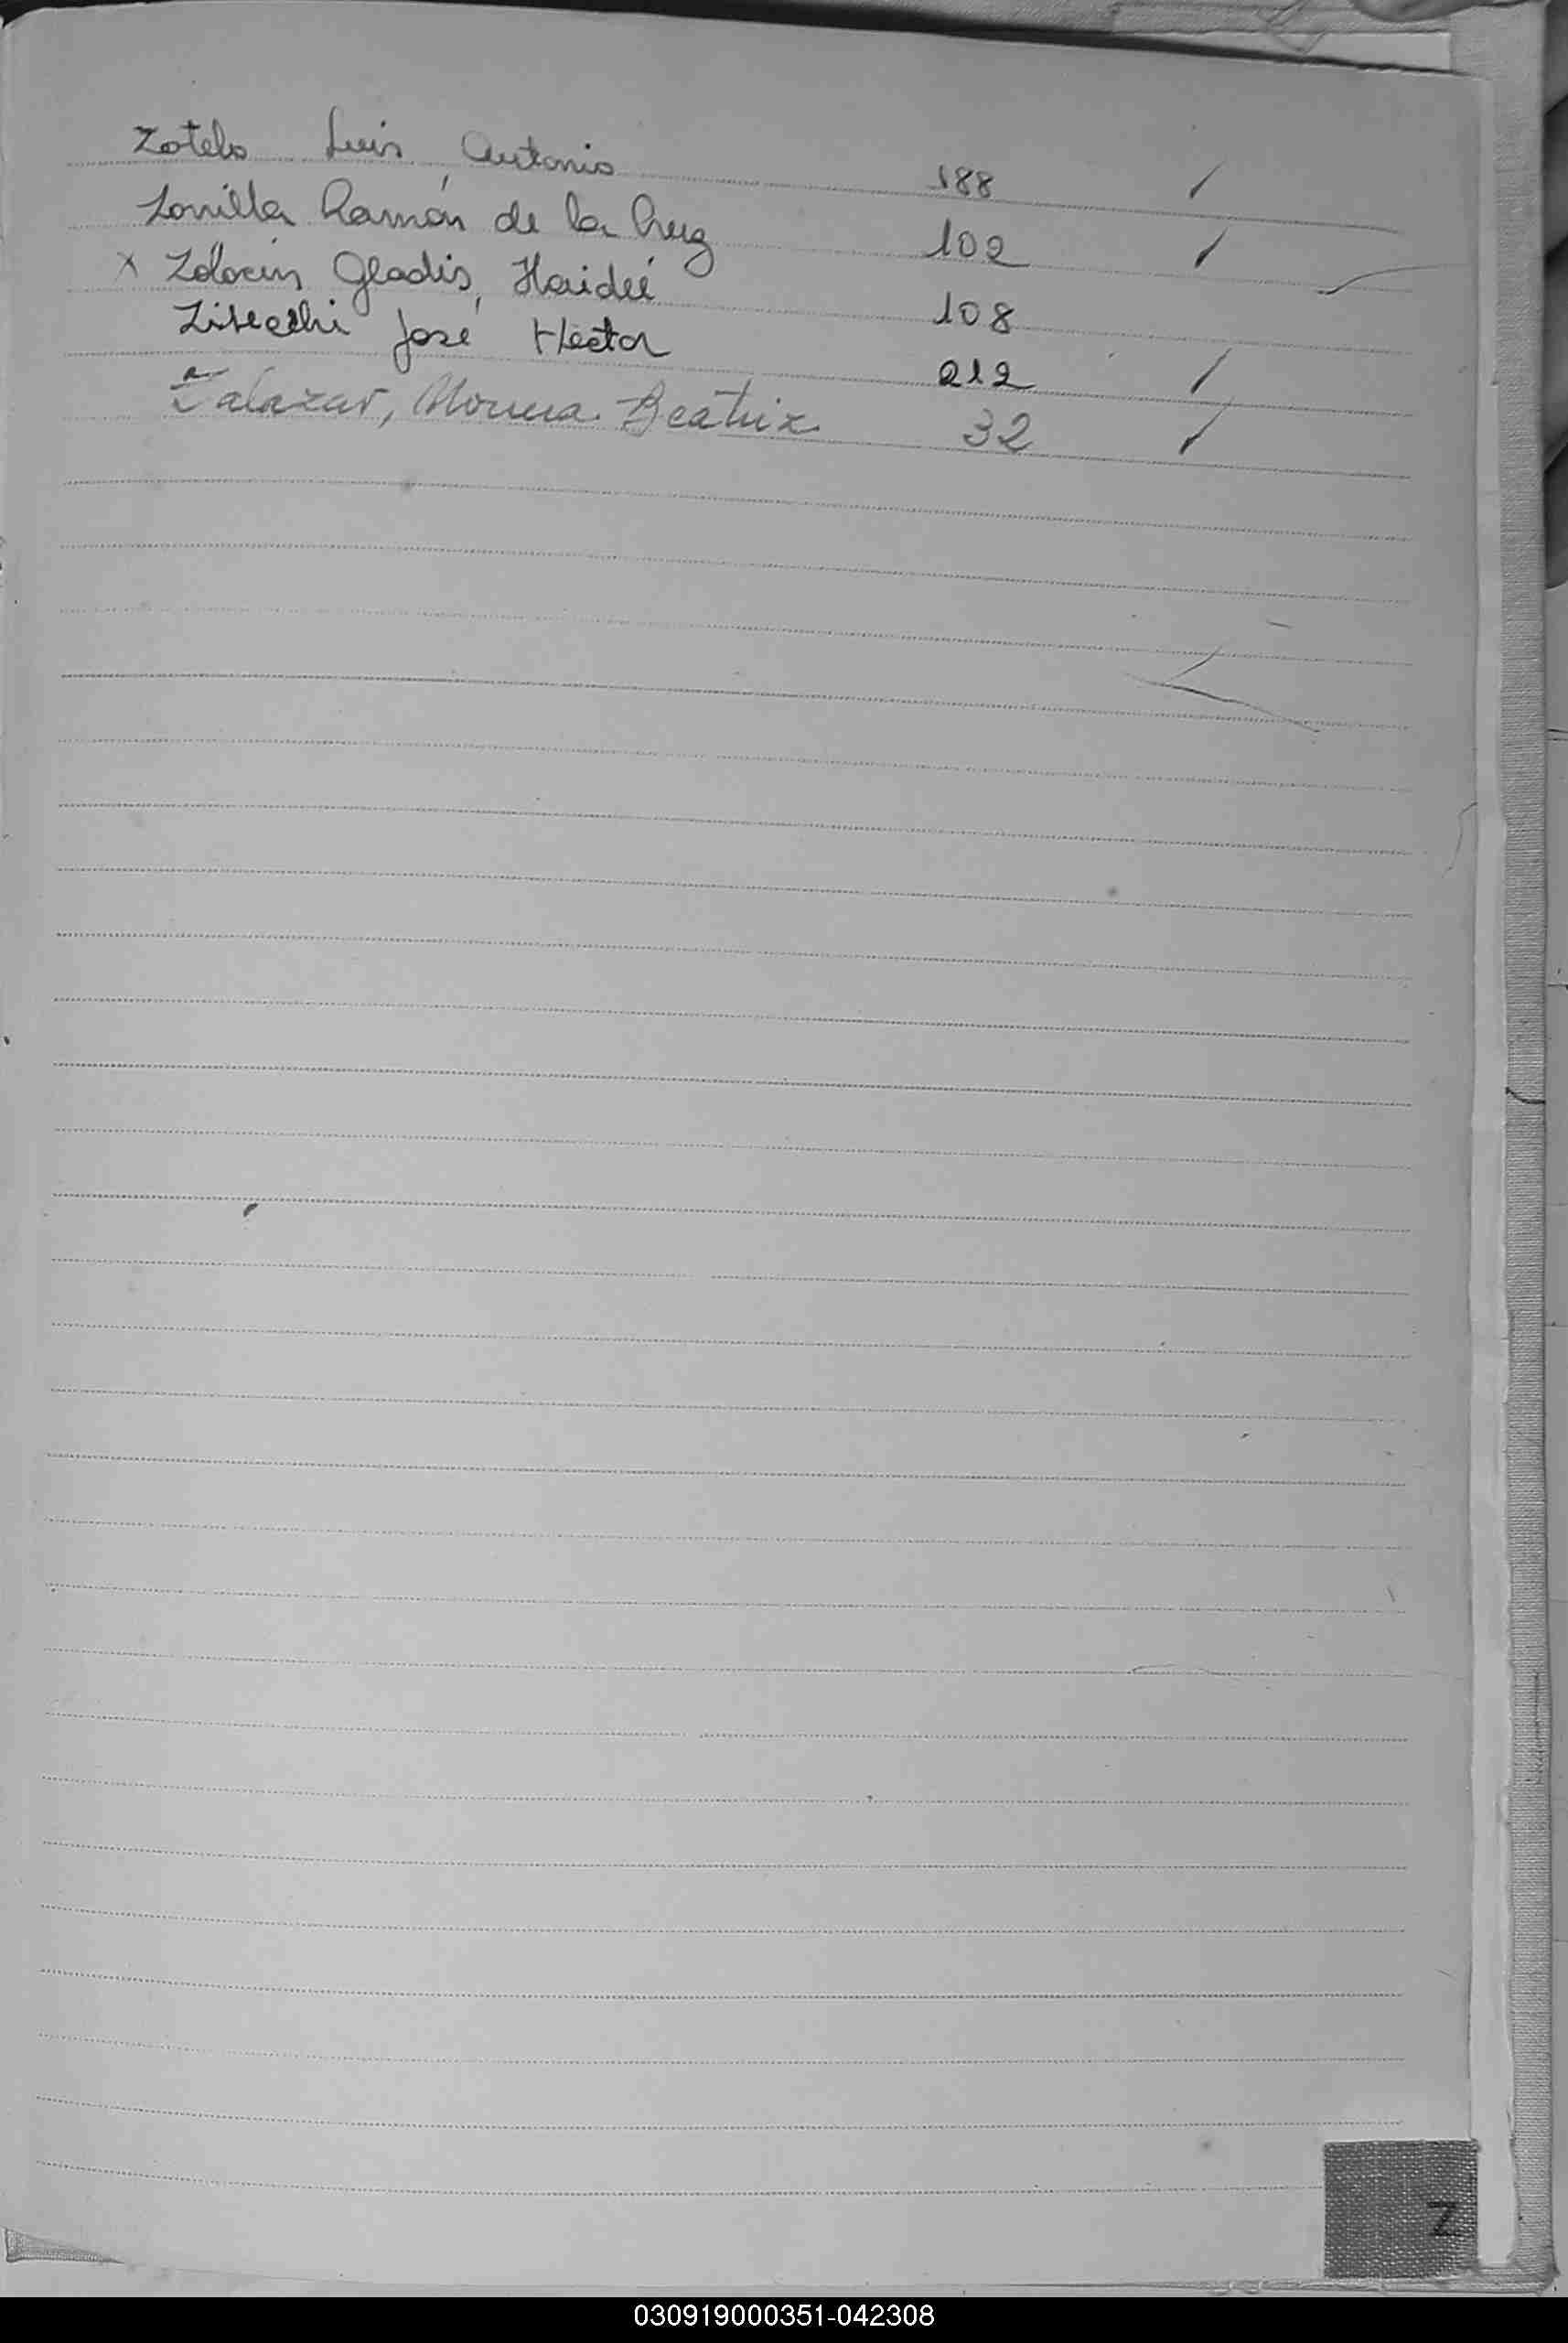 Zotelo Luis Antonio 188 /
Zorrilla Ramón de la Cruz 102 /
x Gladis, Haideé 108
José Hector 212 /
Zalazar, Beatriz 32 /
Z
030919000351-042308